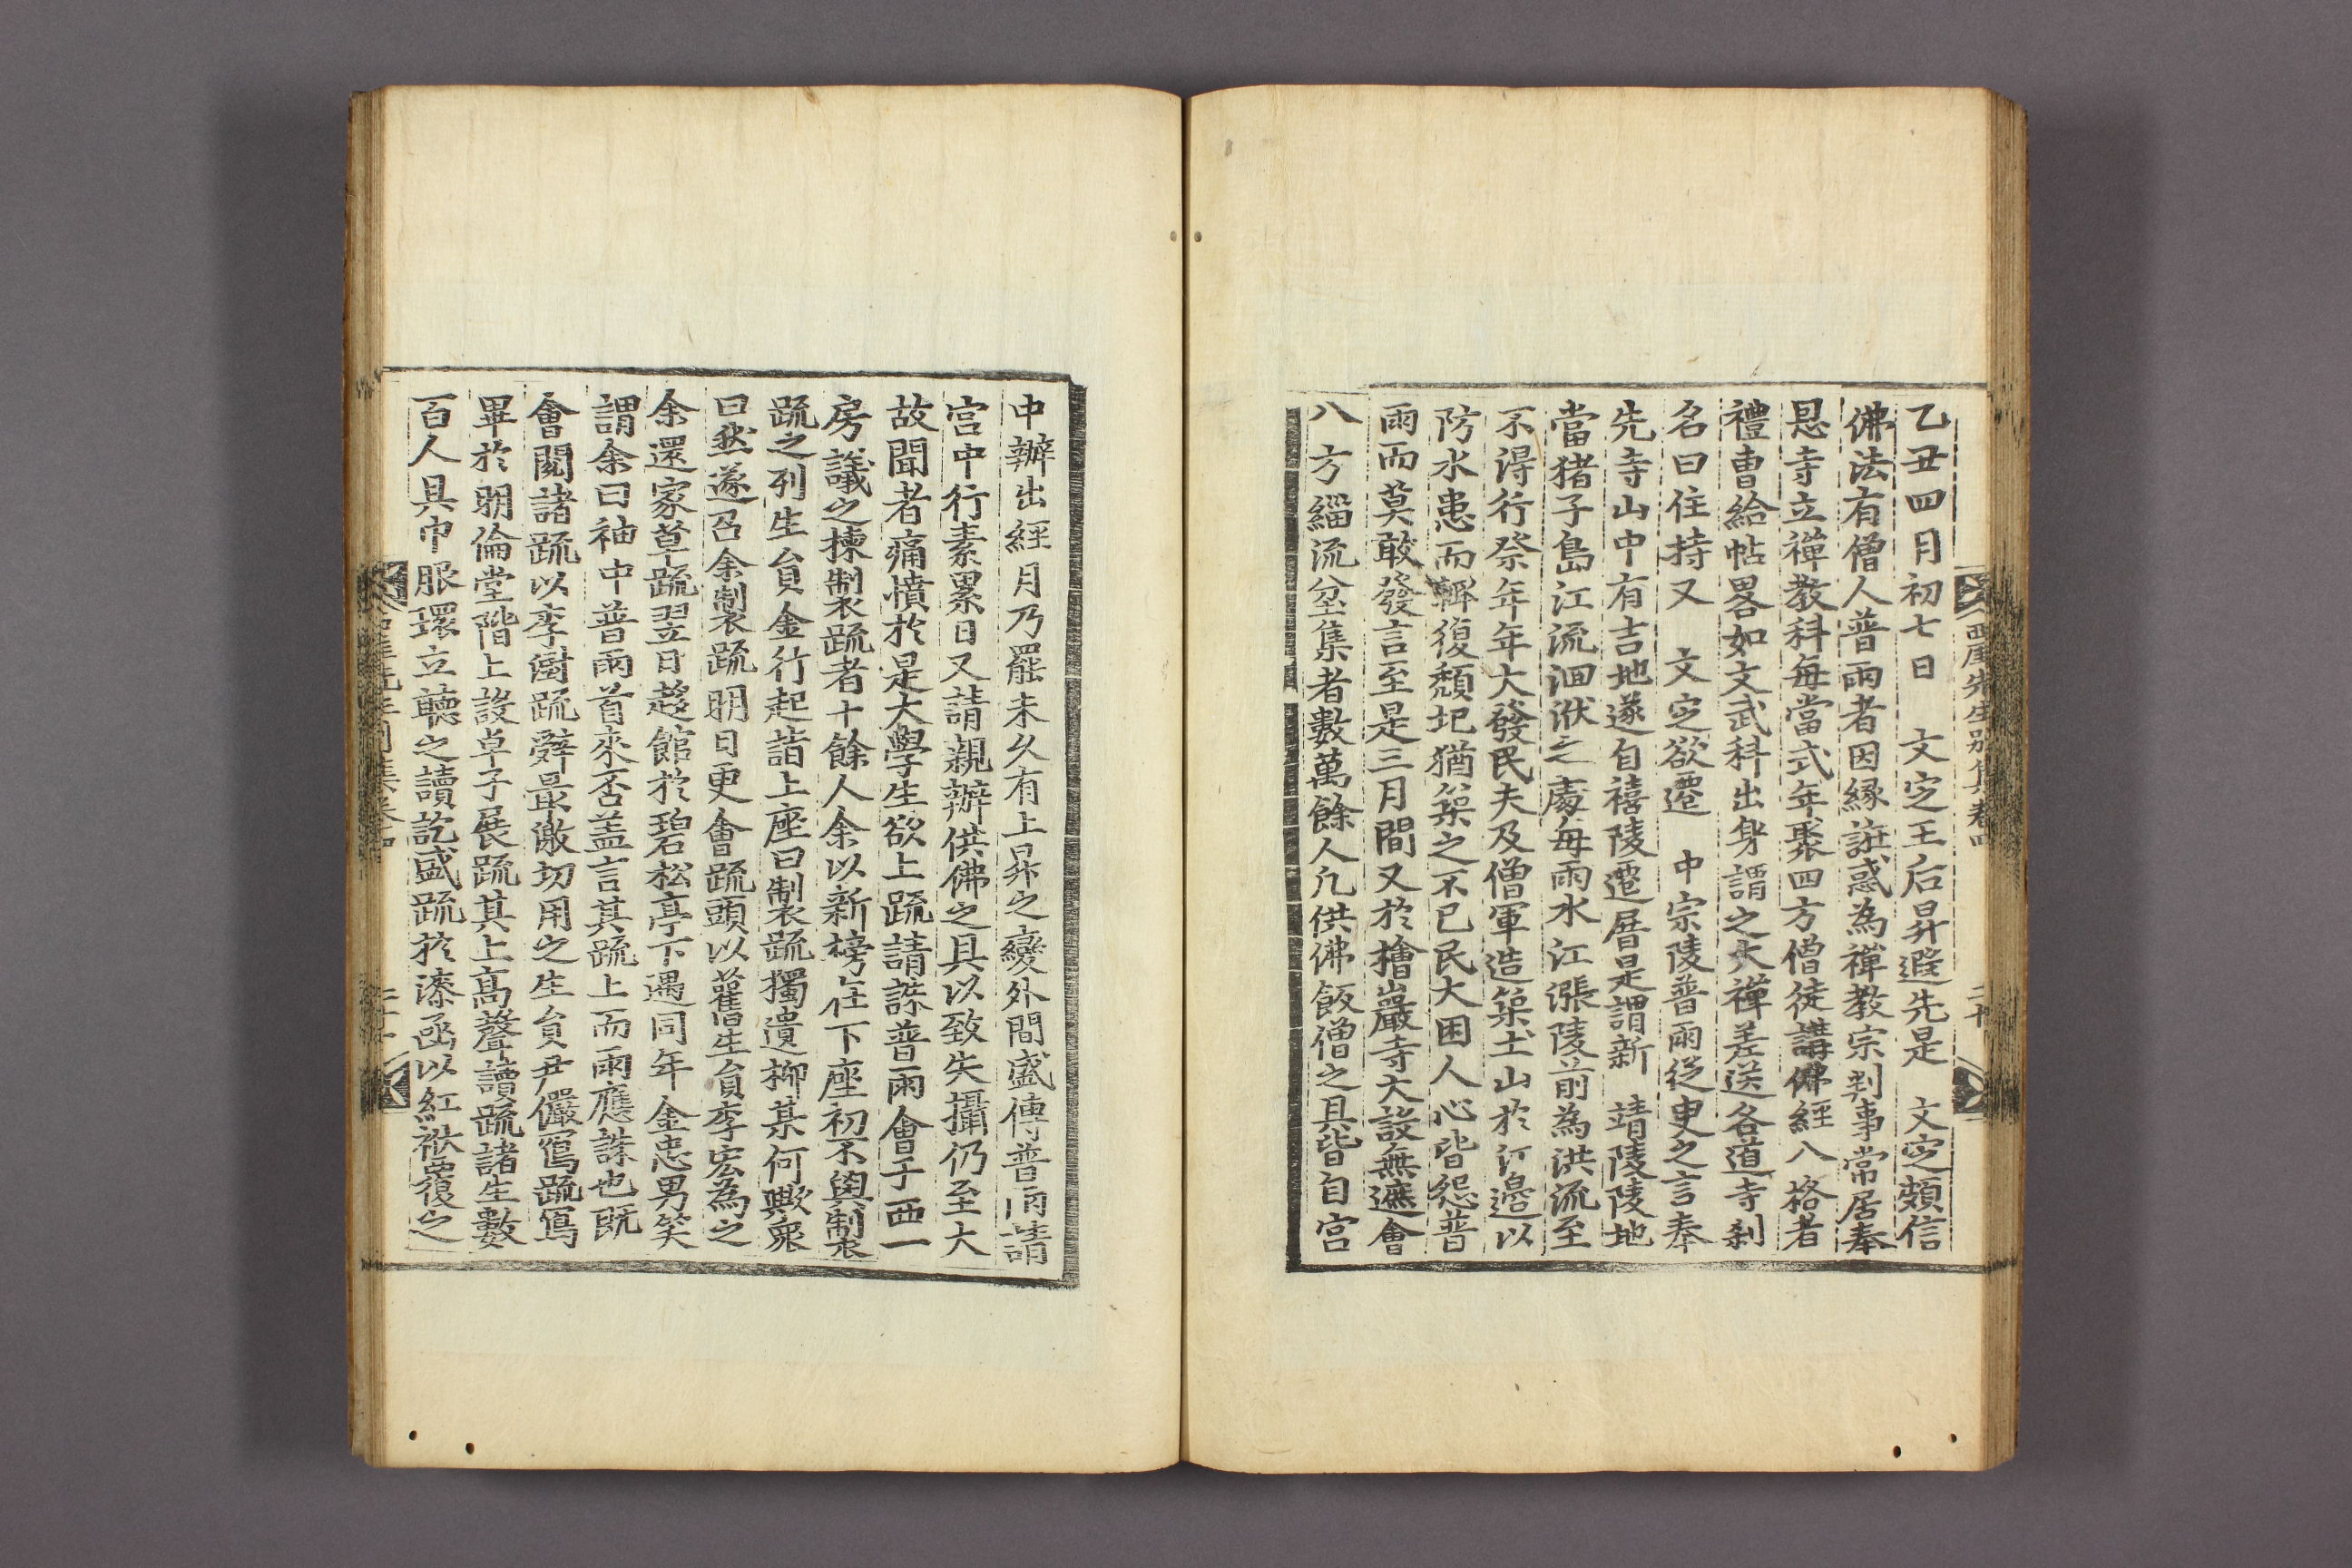 乙丑四月初七日 文定王后昇遐先是 文定頗信
佛法有僧人普雨者因緣誑惑為禪教宗判事常居奉
恩寺立禪教科每當式年聚四方僧徒講佛經入格者
禮曹給帖畧如文武科出身謂之大禪差送各道寺刹
名曰住持又 文定欲遷 中宗陵普雨從臾之言奉
先寺山中有吉地遂自禧陵遷厝是謂新 靖陵陵地
當猪子島江流洄洑之處每雨水江漲陵前為洪流至
不得行祭年年大發民夫及僧軍造築土山於江邊以
防水患而輒復頹圮猶築之不已民大困人心皆怨普
雨而莫敢發言至是三月間又於檜巖寺大設無遮會
八方緇流坌集者數萬餘人凡供佛飯僧之具皆自宮
西厓先生別集卷四
二十
中辦出經月乃罷未久有上昇之變外間盛傳普雨請
宮中行素累日又請親辦供佛之具以致失攝仍至大
故聞者痛憤於是大學生欲上疏請誅普雨會于西一
房議之揀製疏者十餘人余以新榜在下座初不與製
疏之列生員金行起詣上座曰製疏獨遺柳某何歟衆
曰然遂召余製疏明日更會疏頭以舊生員李宏為之
余還家草疏翌日趍館於碧松亭下遇同年金忠男笑
謂余曰袖中普雨首來否盖言其疏上而雨應誅也旣
會閱諸疏以李澍疏辭最激切用之生員尹儼寫疏寫
畢於明倫堂階上設卓子展疏其上高聲讀疏諸生數
百人具巾服環立聽之讀訖盛疏於漆函以紅袱覆之